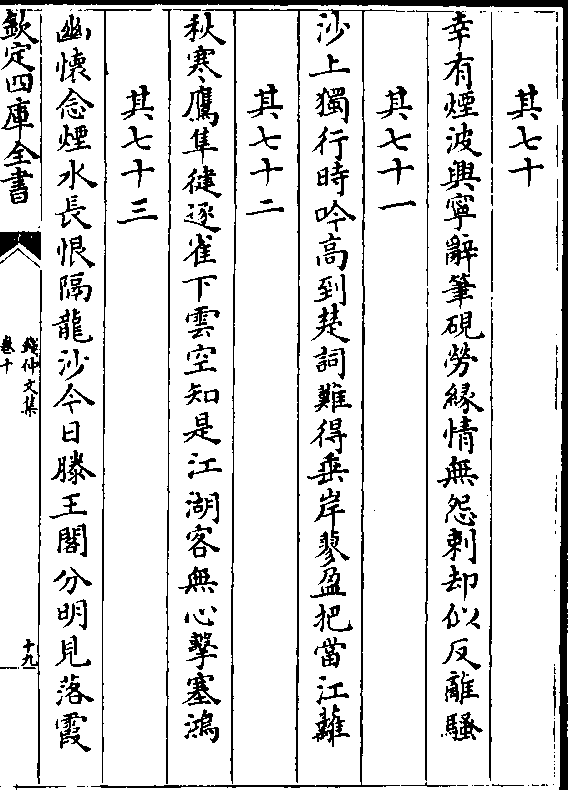 其七十
幸有煙波興寧辭筆硯勞緣情無怨刺却似反離騷
其七十一
沙上獨行時吟高到楚詞難得垂岸蓼盈把當江蘺
其七十二
秋寒鷹隼健逐雀下雲空知是江湖客無心擊塞鴻
其七十三
幽懷念煙水長恨隔龍沙今日滕王閣分明見落霞
欽定四庫全書
錢仲文集
卷十
十九